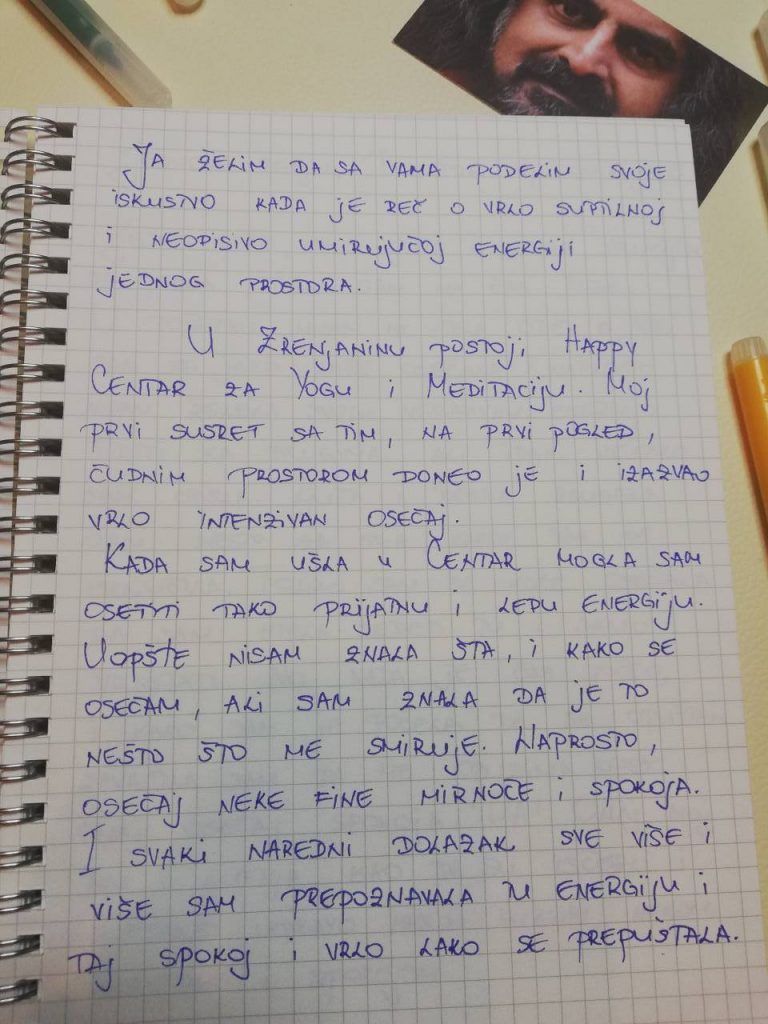 Ja želim da sa vama podelim svoje
iskustvo kada je reč o vrlo suptilnoj
i neopisivo umirujućoj energiji
jednog prostora.
U Zrenjaninu postoji, Happy
Centar za Yogu i Meditaciju. Moj
prvi susret sa tim, na prvi pogled,
čudnim prostorom doneo je i izazvao
vrlo intenzivan osećaj.
Kada sam ušla u Centar mogla sam
osetyti tako prijatnu i lepu energiju.
Uopšte nisam znala šta, i kako se
osećam, ali sam znala da je to
nešto što me smiruje. Naprosto,
osećaj neke fine mirnoće i spokoja.
I svaki naredni dolazak sve više i
više sam prepoznavala tu energiju i
taj spokoj i vrlo lako se prepuštala.